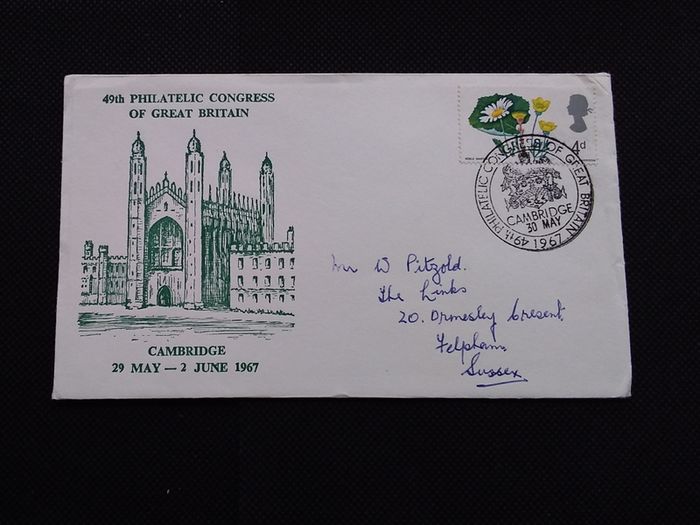 49th PHILATELIC CONGRESS
OF GREAT BRITAIN
CAMBRIDGE
29 MAY — 2 JUNE 1967
4d
49th PHILATELIC CONGRESS OF GREAT BRITAIN
CAMBRIDGE
30 MAY
1967
Mr W Pitzold.
The Links
20. Ormesley Cresent
Felpham
Sussex